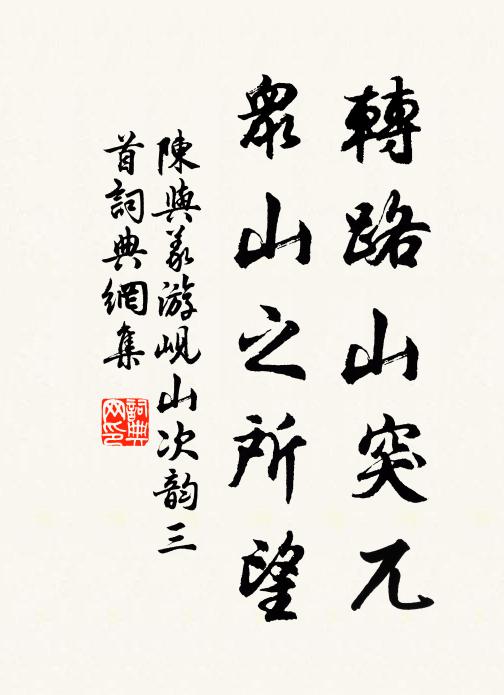 轉路山突兀
眾山之所望
陳與義游峴山次韵三
首詞典網集
詞典
网印